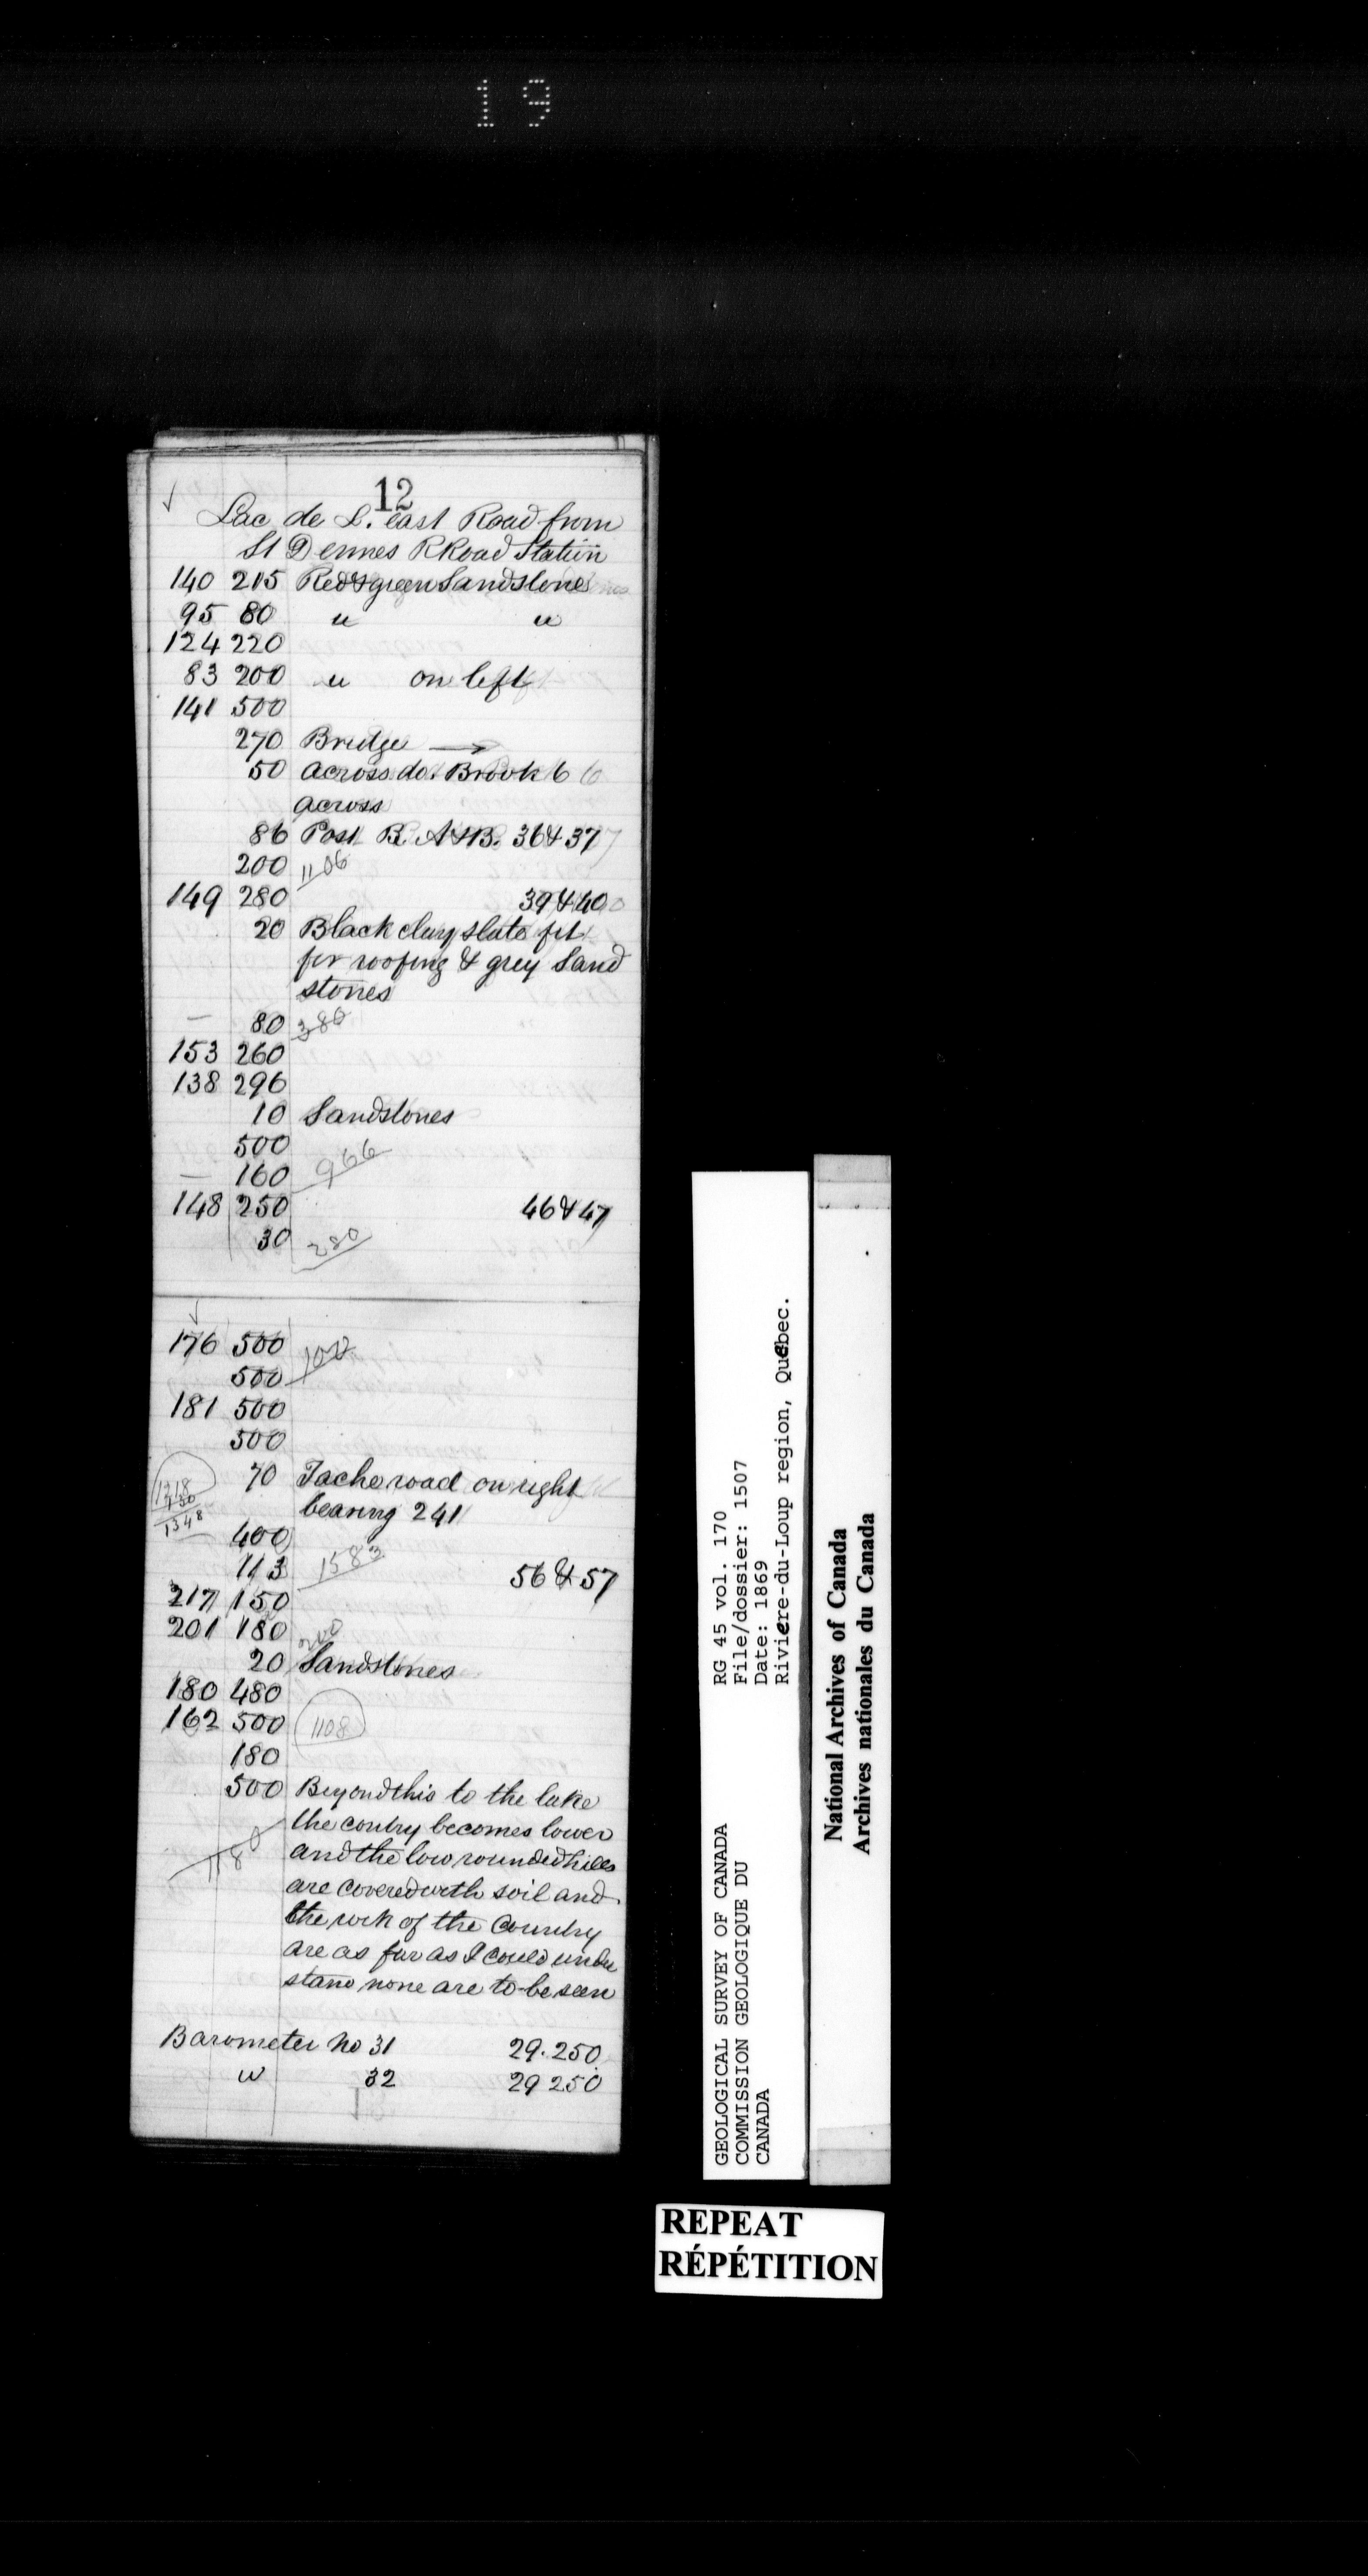 19
12
Lac de L. east Road from
St Dennes RRoad Station
140 215 Red & green Sandstones
95 80 " "
124 220
83 200 " on left
141 500
270 Bridge →
50 across do. Brook 6
across
86 Post B. A & B. 36 & 37
200 1106
149 280 39 & 40
20 Black clay slate fit
for roofing & grey Sand
stones
— 80 380
153 260
138 296
10 Sandstones
500
— 160 966
148 250 46 & 47
30 280
176 500
500 1000
181 500
500
70 Tache road on right
bearing 241
1318
1348
400
113 1583 56 & 57
217 150
201 180 200
20 Sandstones
180 480
162 500 1108
180
500 Beyond this to the lake
the contry becomes lower
and the low rounded hills
1180
are covered with soil and
the rock of the Country
are as far as I could under
stand none are to be seen
Barometer no 31 29.250
" 32 29 250
GEOLOGICAL SURVEY OF CANADA
COMMISSION GEOLOGIQUE DU
CANADA
RG 45 vol. 170
File/dossier: 1507
Date: 1869
Riviere-du-Loup region, Quebec.
National Archives of Canada
Archives nationales du Canada
REPEAT
RÉPÉTITION